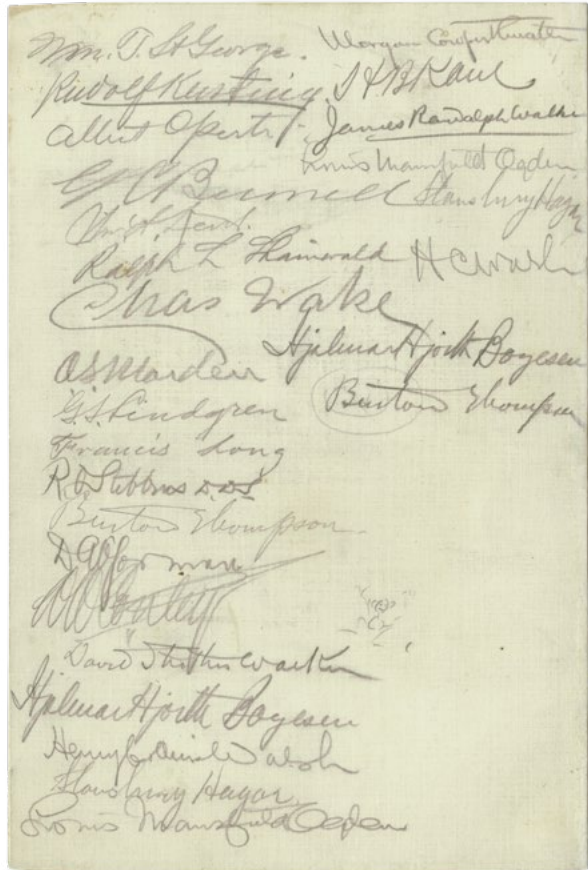 Wm. T. St George.
Morgan Coupirthwaiter
Rudolf Kersting.
H B Kaul
Albert Operti
James Randolph Walker
Louis Mansfield Ogden
Stansbury Hagar
Ralph L Shainwald
H C Walsh
Chas Wake
Hjalmar Hjorth Boyesen
O S Marden
Burton Thompson
G. S. Lindgren
Francis Long
R O Stebbins D.D.S
Burton Thompson
David
Hjalmar Hjorth Boyesen
Henry Collins Walsh
Stansbury Hagar
Louis Mansfield Ogden